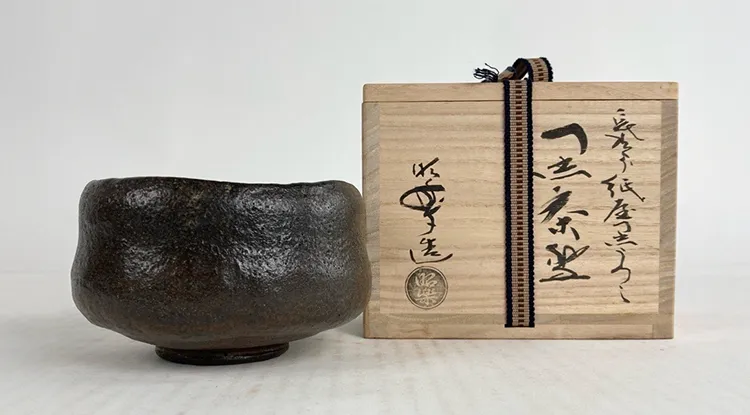 長次郎 紙屋黒うつし
黒茶碗
昭楽造
昭樂